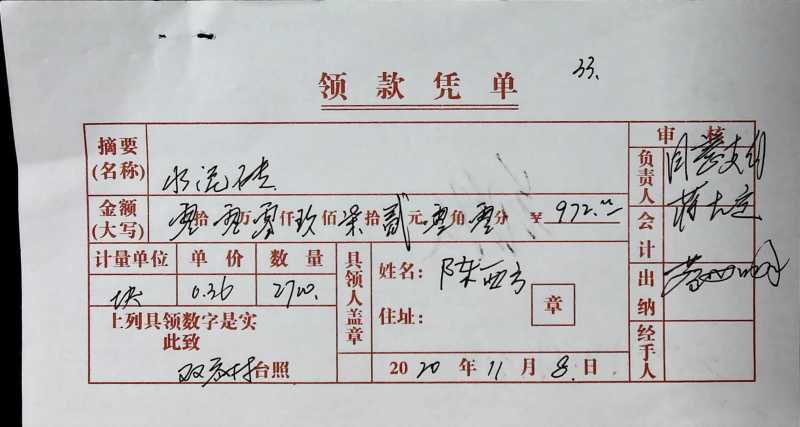 33.
领款凭单
摘要(名称) 水泥砖
审核
负责人 同意支付
金额(大写) 零拾零万零仟玖佰柒拾贰元零角零分 ¥ 972.00
会计
计量单位 单价 数量
块 0.36 2700.
具领人盖章
姓名: 陈西方
住址:
章
出纳
上列具领数字是实
此致
台照
2020年11月8日
经手人